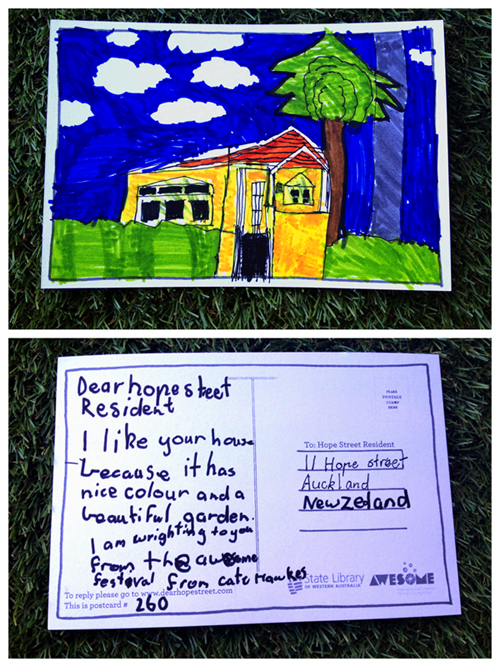 Dear hope street
Resident
I like your house
because it has
nice colour and a
beautiful garden.
I am wrighting to you
from the awesome
festeval from cate Hawkes
To reply please go to www.dearhopestreet.com
This is postcard # 260
PLACE
POSTAGE
STAMP
HERE
To: Hope Street Resident
11 Hope street
Auckland
New Zeland
State Library
OF WESTERN AUSTRALIA
AWESOME